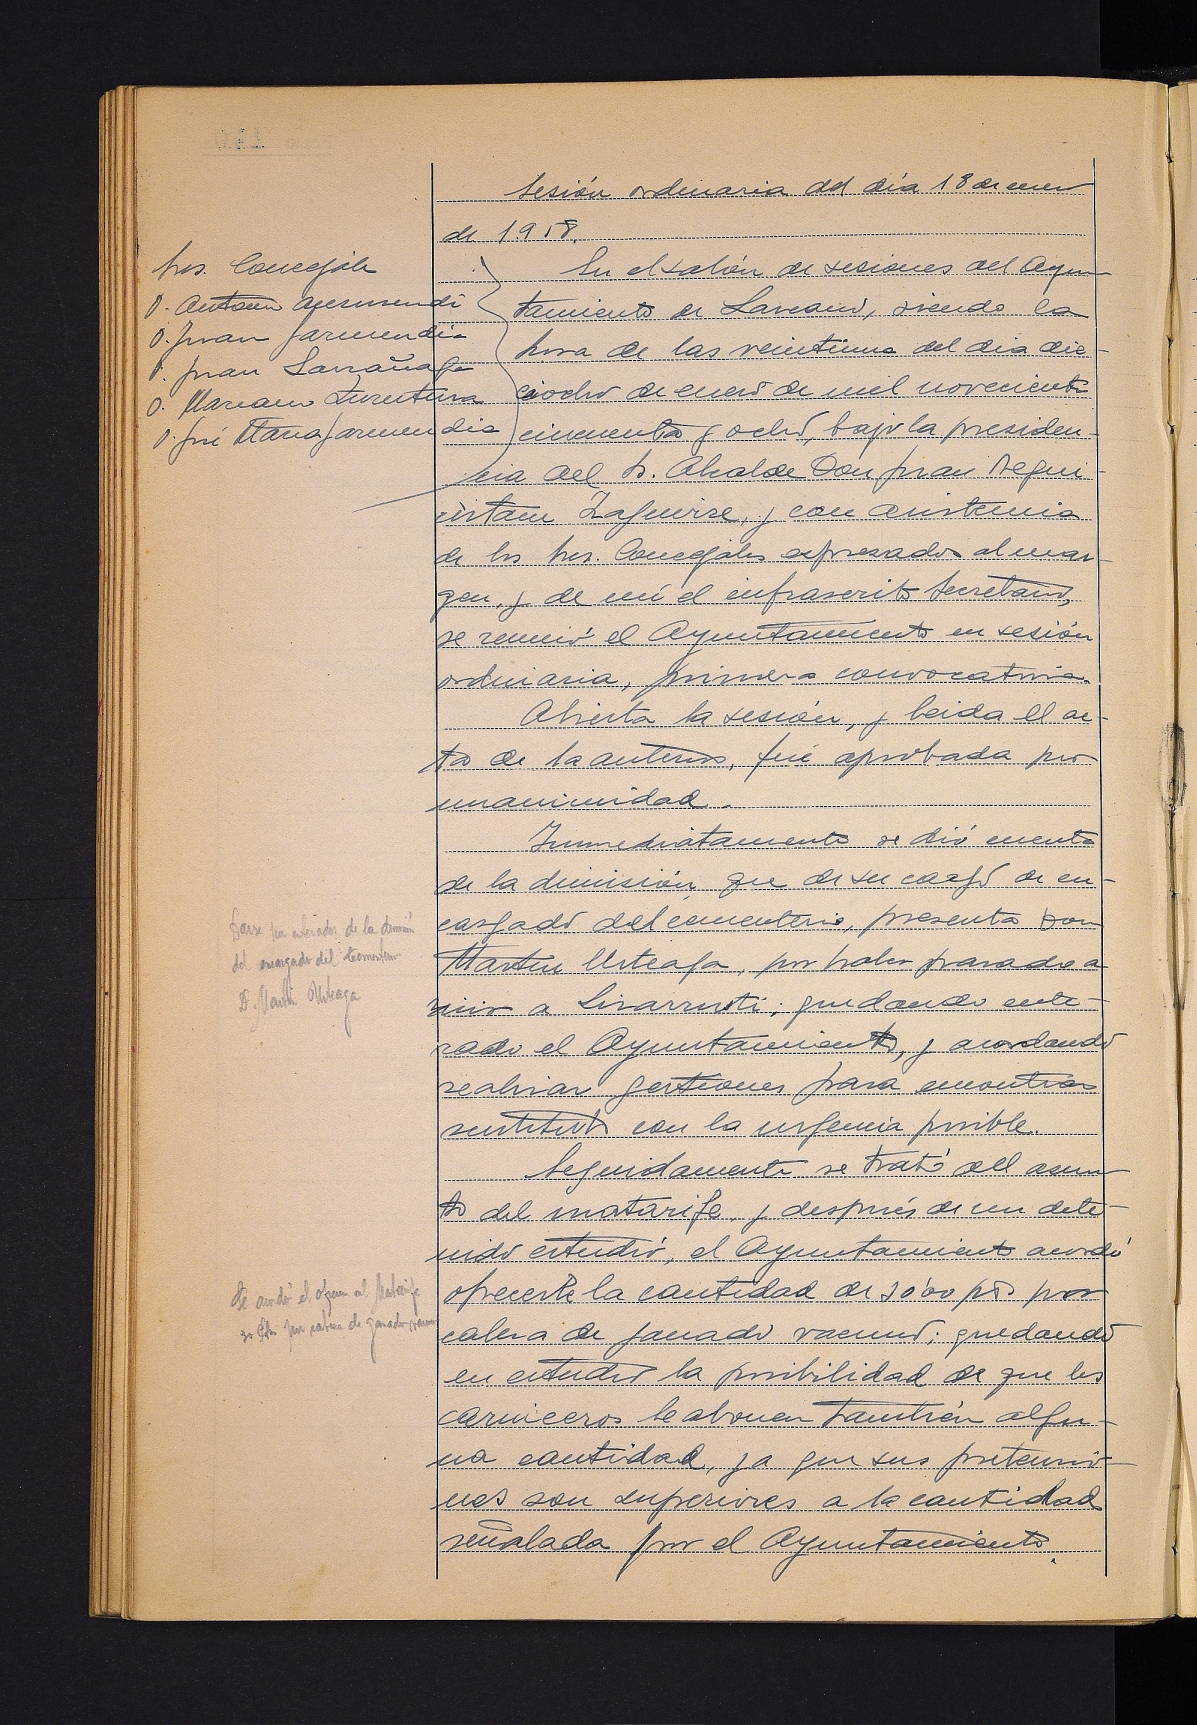 Sesión ordinaria del día 18 de enero
de 1958.
Sres. Concejales
D. Antonio Aurrusendi
D. Juan Garmendia
D. Juan Larrañaga
D. Mariano Zurutuza
D. José María Garmendia
En el salón de sesiones del Ayun-
tamiento de Larraul, siendo la
hora de las veintiuna del día die-
ciocho de enero de mil novecientos
cincuenta y ocho, bajo la presiden-
cia del Sr. Alcalde Don Juan Segui-
Zaguirre, y con asistencia
de los Sres. Concejales expresados al mar-
gen, y de mí el infrascrito Secretario,
se reunió el Ayuntamiento en sesión
ordinaria, primera convocatoria.
Abierta la sesión, y leida el ac-
ta de la anterior, fué aprobada por
unanimidad.
Inmediatamente se dió cuenta
de la dimisión que de su cargo de en-
cargado del cementerio, presenta Don
Martin Urteaga, por haber pasado a
vivir a Lizarrusti; quedando ente-
rado el Ayuntamiento, y acordando
realizar gestiones para encontrar
sustituto con la urgencia posible.
Darse por enterados de la dimisión
del encargado del cementerio
D. Martín Urteaga
Seguidamente se trató del asun-
to del matarife, y después de un dete-
nido estudio, el Ayuntamiento acordó
ofrecerle la cantidad de 30'00 pts por
cabeza de ganado vacuno; quedando
en estudio la posibilidad de que los
carniceros le abonen también algu-
na cantidad, ya que sus pretensio-
nes son superiores a la cantidad
señalada por el Ayuntamiento.
Se acordó el ofrecer al Matarife
30 Pts por cabeza de ganado vacuno